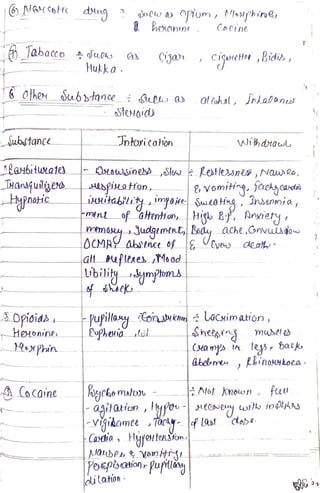 ⑥ Narcotic drug : Such as Opium, Morphine,
heroinne. Cocine
⑦ Tabacco : Such as Cigar, Cigarette, Bidis,
Hukka.
8 Other Substance : Such as alcohal, Inhalanes
Steroids
Substance Intoxication Withdrawl
Barbiturates - Drowsiness, Slow : Restlessness, Nausea,
Tranquilizers respiration, & vomiting, Tachycardia
Hypnotic irritability, impaire- Sweating, Insomnia,
-ment of attention, High B.P. Anxiety,
memory, Judgement, Body ache, Convulsion
absence of & Even death.
all reflexes, Mood
libility, Symptoms
of Shock
Opioids, - pupillary Constriction : Lacrimation,
Heroine, Euphoria Sneezing muscles
Morphin Cramps in legs, back,
abdomen, Rhinorrhoea.
Cocaine Psychomotor : Not known. full
- agitation, Hyper- recovery with in
- vigilamce, Tachy- of last dose.
Cardia, Hypertension,
Nausea & vomiting,
Perspiration, Pupillary
dilation.